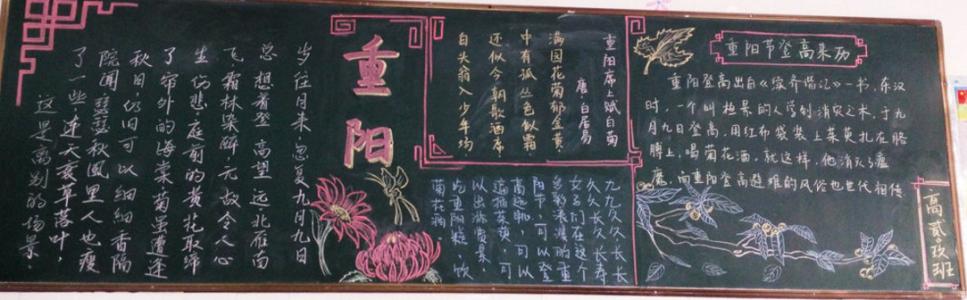 重阳
岁往月来,忽复九月九日
总想着登高望远,北雁南
飞,霜林染醉,无故令人心
生伤悲,庭前的黄花取缔
了帘外的海棠菊虽遭逐
秋日仍旧可以细细香隔
院闻瑟瑟秋风里人也瘦
了一些连天衰草落叶,
这是离别的场景。
重阳席上赋白菊
唐·白居易
满园花菊郁金黄,
中有孤丛色似霜.
还似今朝歌酒席,
白头翁入少年场
九九久久长长
久久长长寿
女子们在这个
多彩浪漫的重
阳节,可以登
高远眺,可
遍插茱萸,可
以出游赏景,
吃重阳糕,饮
菊花酒
重阳节登高来历
重阳登高出自《续齐谐记》一书,东汉
时,一个叫桓景的人学到消灾之术,于九
月九日登高,用红布袋装上茱萸扎在胳
膊上,喝菊花酒,就这样,他消灭了瘟
魔,而重阳登高避难的风俗也世代相传
高贰玖班